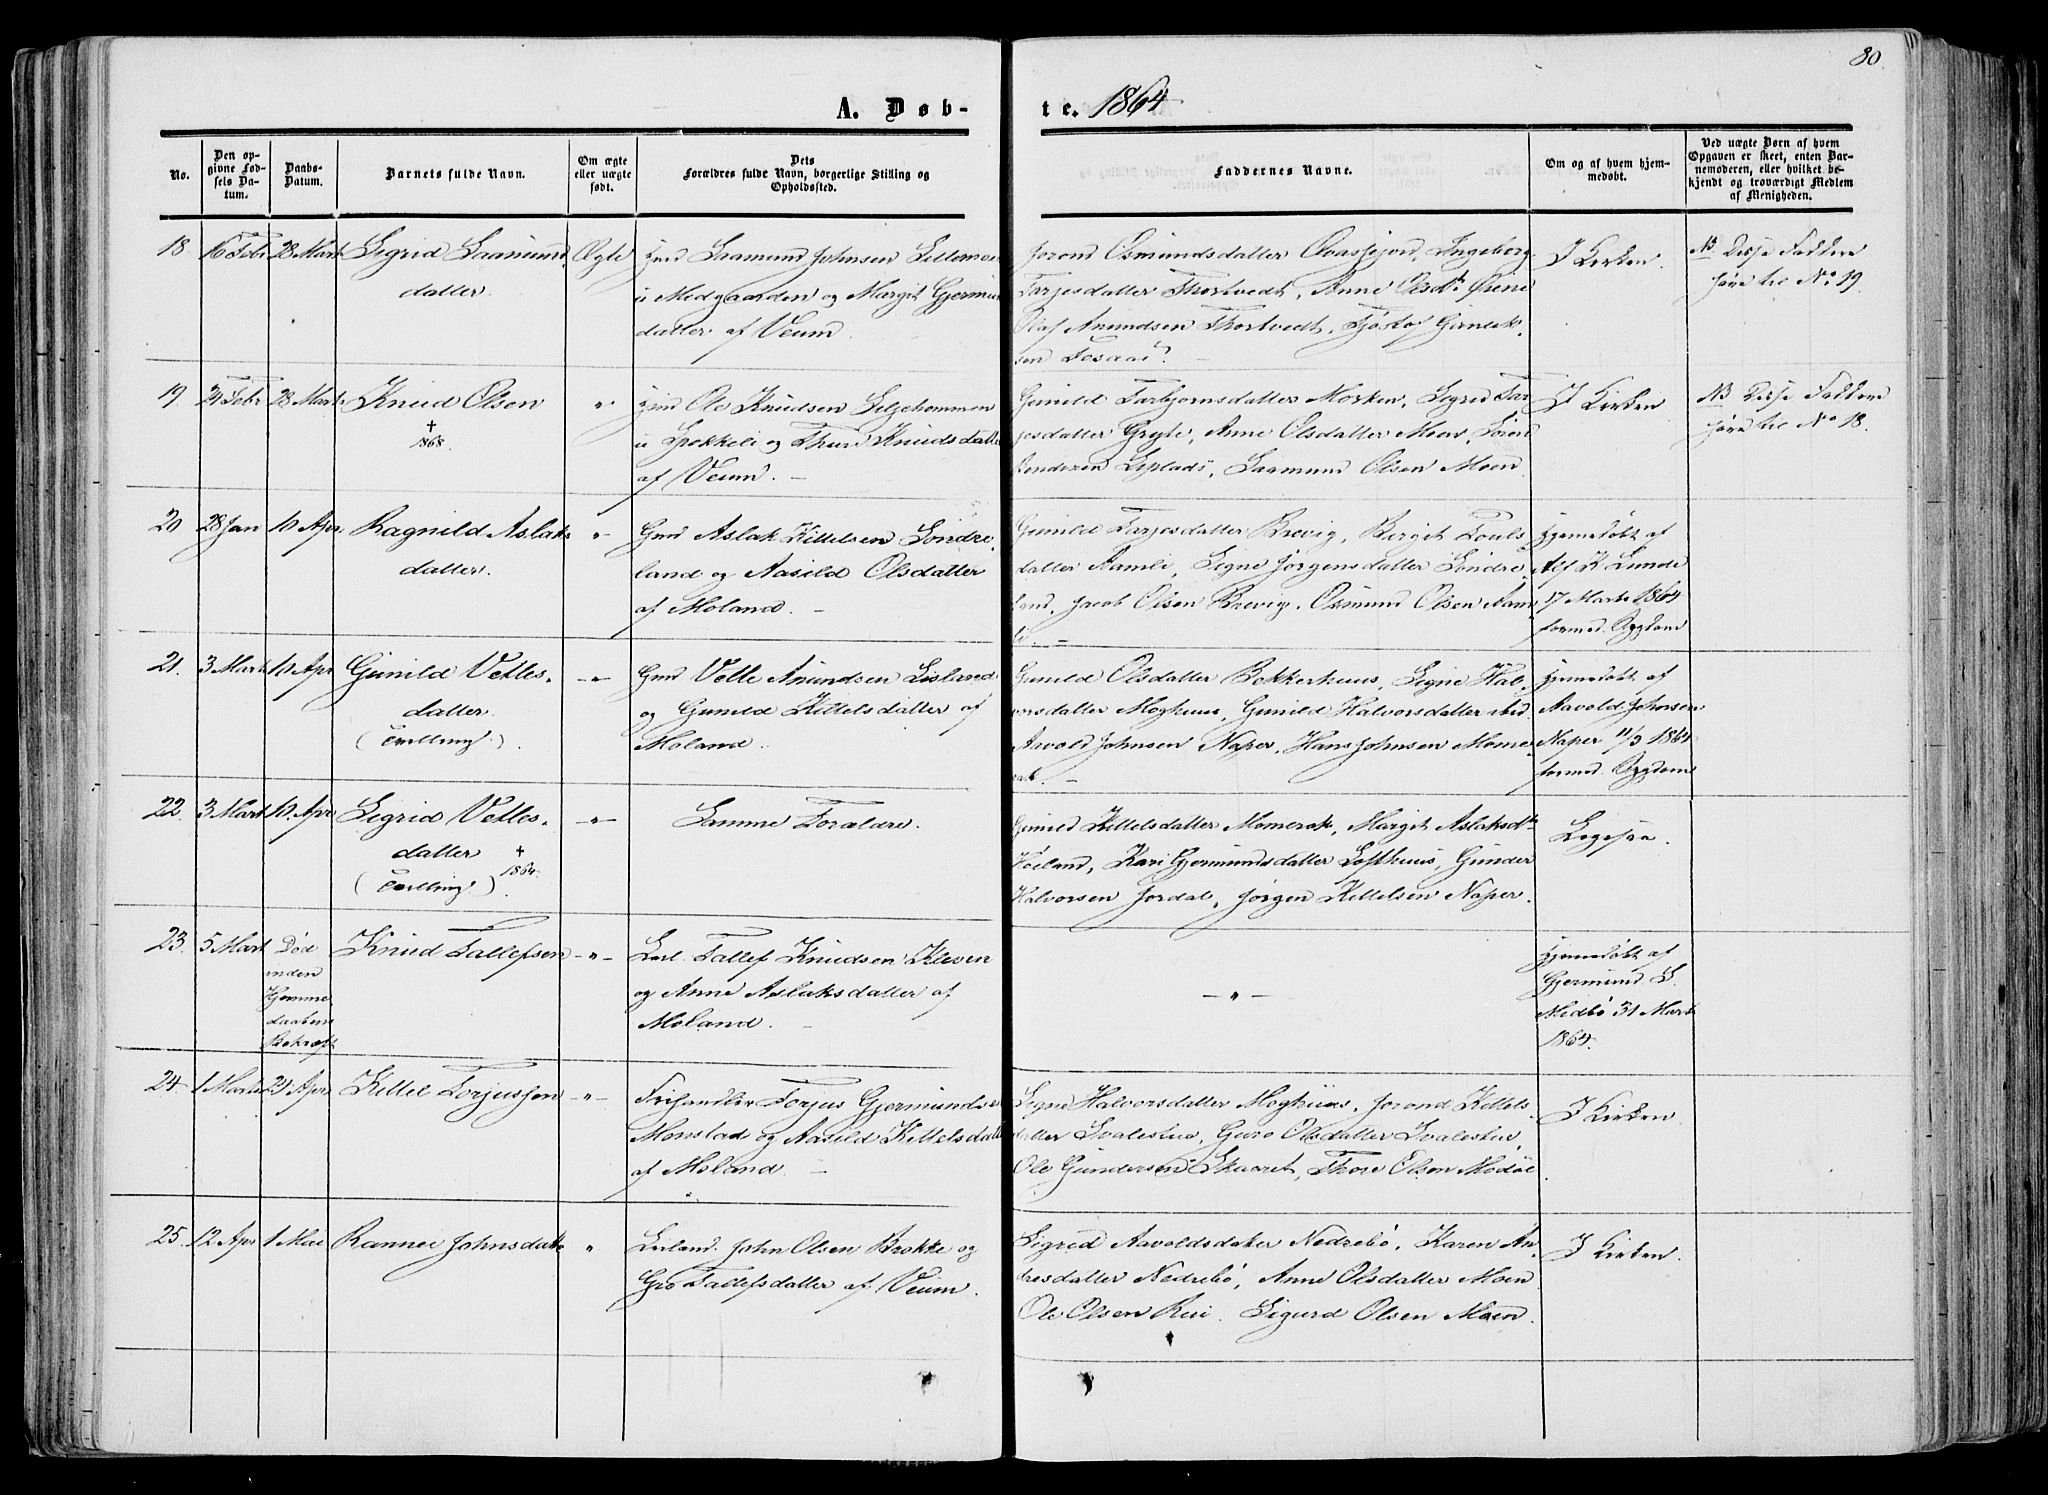 80.
A. Døb-
te. 1864
No.
Den op-
givne Fød-
sels Da-
tum.
Daabs-
Datum.
Barnets fulde Navn.
Om ægte
eller uægte
født.
Dets
Forældres fulde Navn, borgerlige Stilling og
Opholdssted.
Faddernes Navne.
Om og af hvem hjem-
medøbt.
Ved uægte Børn af hvem
Opgaven er skeet, enten Bar-
nemoderen, eller hvilket be-
kjendt og troværdigt Medlem
af Menigheden.
18. 16 Febr 28 Marts Sigrid Saamunds
datter.
Ægte
Gmd Saamund Johnsen Lillemoen
u Midgaarden og Margit Gjermunds
datter af Veum.
Jorond Osmundsdatter Ovasfjord, Ingeborg
Tarjesdatter Thortvedt, Anne Olsdtr. Øiene
Olaf Anundsen Thortvedt,
I Kirken.
NB Disse Faddere
høre til No 19.
19. 24 Febr 28 Marts Knud Olsen
†
1868.
"
Hmd Ole Knudsen Liljehommen
u Spokkeli og Thurí Knudsdatter
af Veum. -
Gunild Tarbjornsdatter Morken, Sigrid Tar
jesdatter Gryte, Anne Olsdatter Moen, Søren
Saamund Olsen Moen
I Kirken
NB Disse Faddere
høre til No 18.
20 28 Jan 10 Apr. Ragnild Aslaks
datter.
"
Gmd Aslak Kittelsen Søndre
land og Aasild Olsdatter
af Moland. -
Gunild Tarjesdatter Brevig, Birgit Pouls
datter Aamli, Signe Jørgensdatter Søndre
land, Jacob Olsen Brevig, Osmund Olsen Aam
li. -
Hjemmedøbt af
Alf K Lunde
17 Marts 1864
formed. Sygdom
21. 3 Marts 10 Apr Gunild Vetles-
datter.
(Tvilling).
- " -
Gmd Vetle Anundsen Lisland
og Gunild Kittelsdatter af
Moland.
Gunild Olsdatter Bekkerhuus, Signe Hal-
vorsdatter Moghuus, Gunild Halvorsdatter ibid.
Aavold Johnsen Naper, Hans Johnsen Mome
rak. -
Hjemmedøbt af
Aavold Johnsen
Naper 11/3 1864
formed. Sygdom
22. 3 Marts 10. Apr Sigrid Vetles-
datter †
1864.
(Tvilling)
- " -
Samme Forældre.
Gunild Kittelsdatter Momerak, Margit Aslaksdtr
Høiland, Kari Gjermundsdatter Lofthuus, Gunder
Halvorsen Jordal, Jørgen Kittelsen Naper.
Ligesaa.
23. 5 Marts Død
inden
Hjemme
daabens
Bekræft
Knud Tallefsen
- " -
Leil. Tallef Knudsen Kleven
og Anne Aslaksdatter af
Moland. -
- " -
Hjemmedøbt af
Gjermund S.
Midbø 31 Marts
1864.
24. 1 Marts 24 Apr Kittel Torjussen
- " -
Frihandler Torjus Gjermundsen
Monstad og Aasild Kittelsdatter
af Moland. -
Signe Halvorsdatter Moghuus, Jorond Kittels
datter Svalestuo, Guro Olsdatter Svalestuo,
Ole Gundersen Skaaret, Thore Olsen Modøe
I Kirken.
25. 12 Apr 1 Mai Rannei Johnsdatter
"
Leiland. John Olsen Brokke og
Gro Tallefsdatter af Veum.
Sigrid Aavoldsdatter Nedrebø, Karen An-
dresdatter Nedrebø, Anne Olsdatter Moen
Ole Olsen Rui. Sigurd Olsen Moen.
I Kirken.